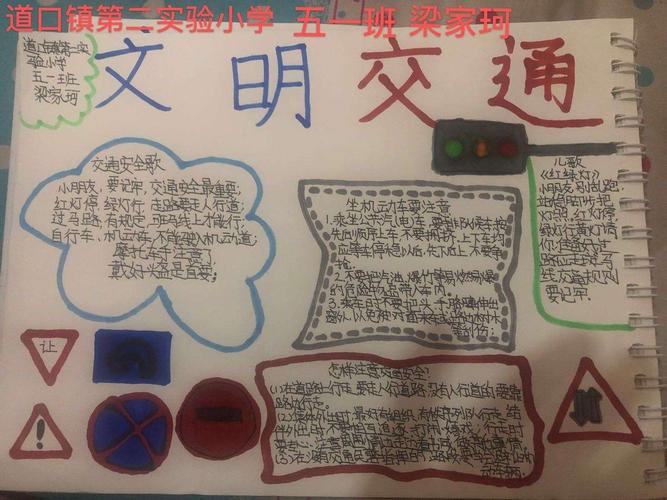 道口镇第二实验小学 五一班 梁家珂
道口镇第二实
验小学
五一班
梁家珂
文明交通
交通安全歌
小朋友,要记牢,交通安全最重要;
红灯停 绿灯行 走路要走人行道;
过马路,有规定 斑马线上才能行;
自行车、机动车,不能驶入机动道;
摩托车
戴好
坐机动车要注意
1.乘坐公共汽电车,要排队候车按
先后顺序上车,不要拥挤,上下车均
应等车停稳以后,先下后上,不要争
抢。
2.不要把汽油、爆竹等易燃易爆
的危险物品带入车内。
3.乘车时不要把头、手、胳膊伸出
窗外,以免被对面来车或路边树木
等刮伤;
儿歌
《红绿灯》
小朋友,别乱跑,
红灯停
绿灯行黄灯
要记牢。
让
怎样注意交通安全?
(1)在道路上行走,要走人行道路,没有人行道的要靠
路边行走。
(2)集体外出时,最好有组织、有秩序列队行走;结
伴外出时,不要相互追逐、打闹、嬉戏;行走时
要专心,注意周围